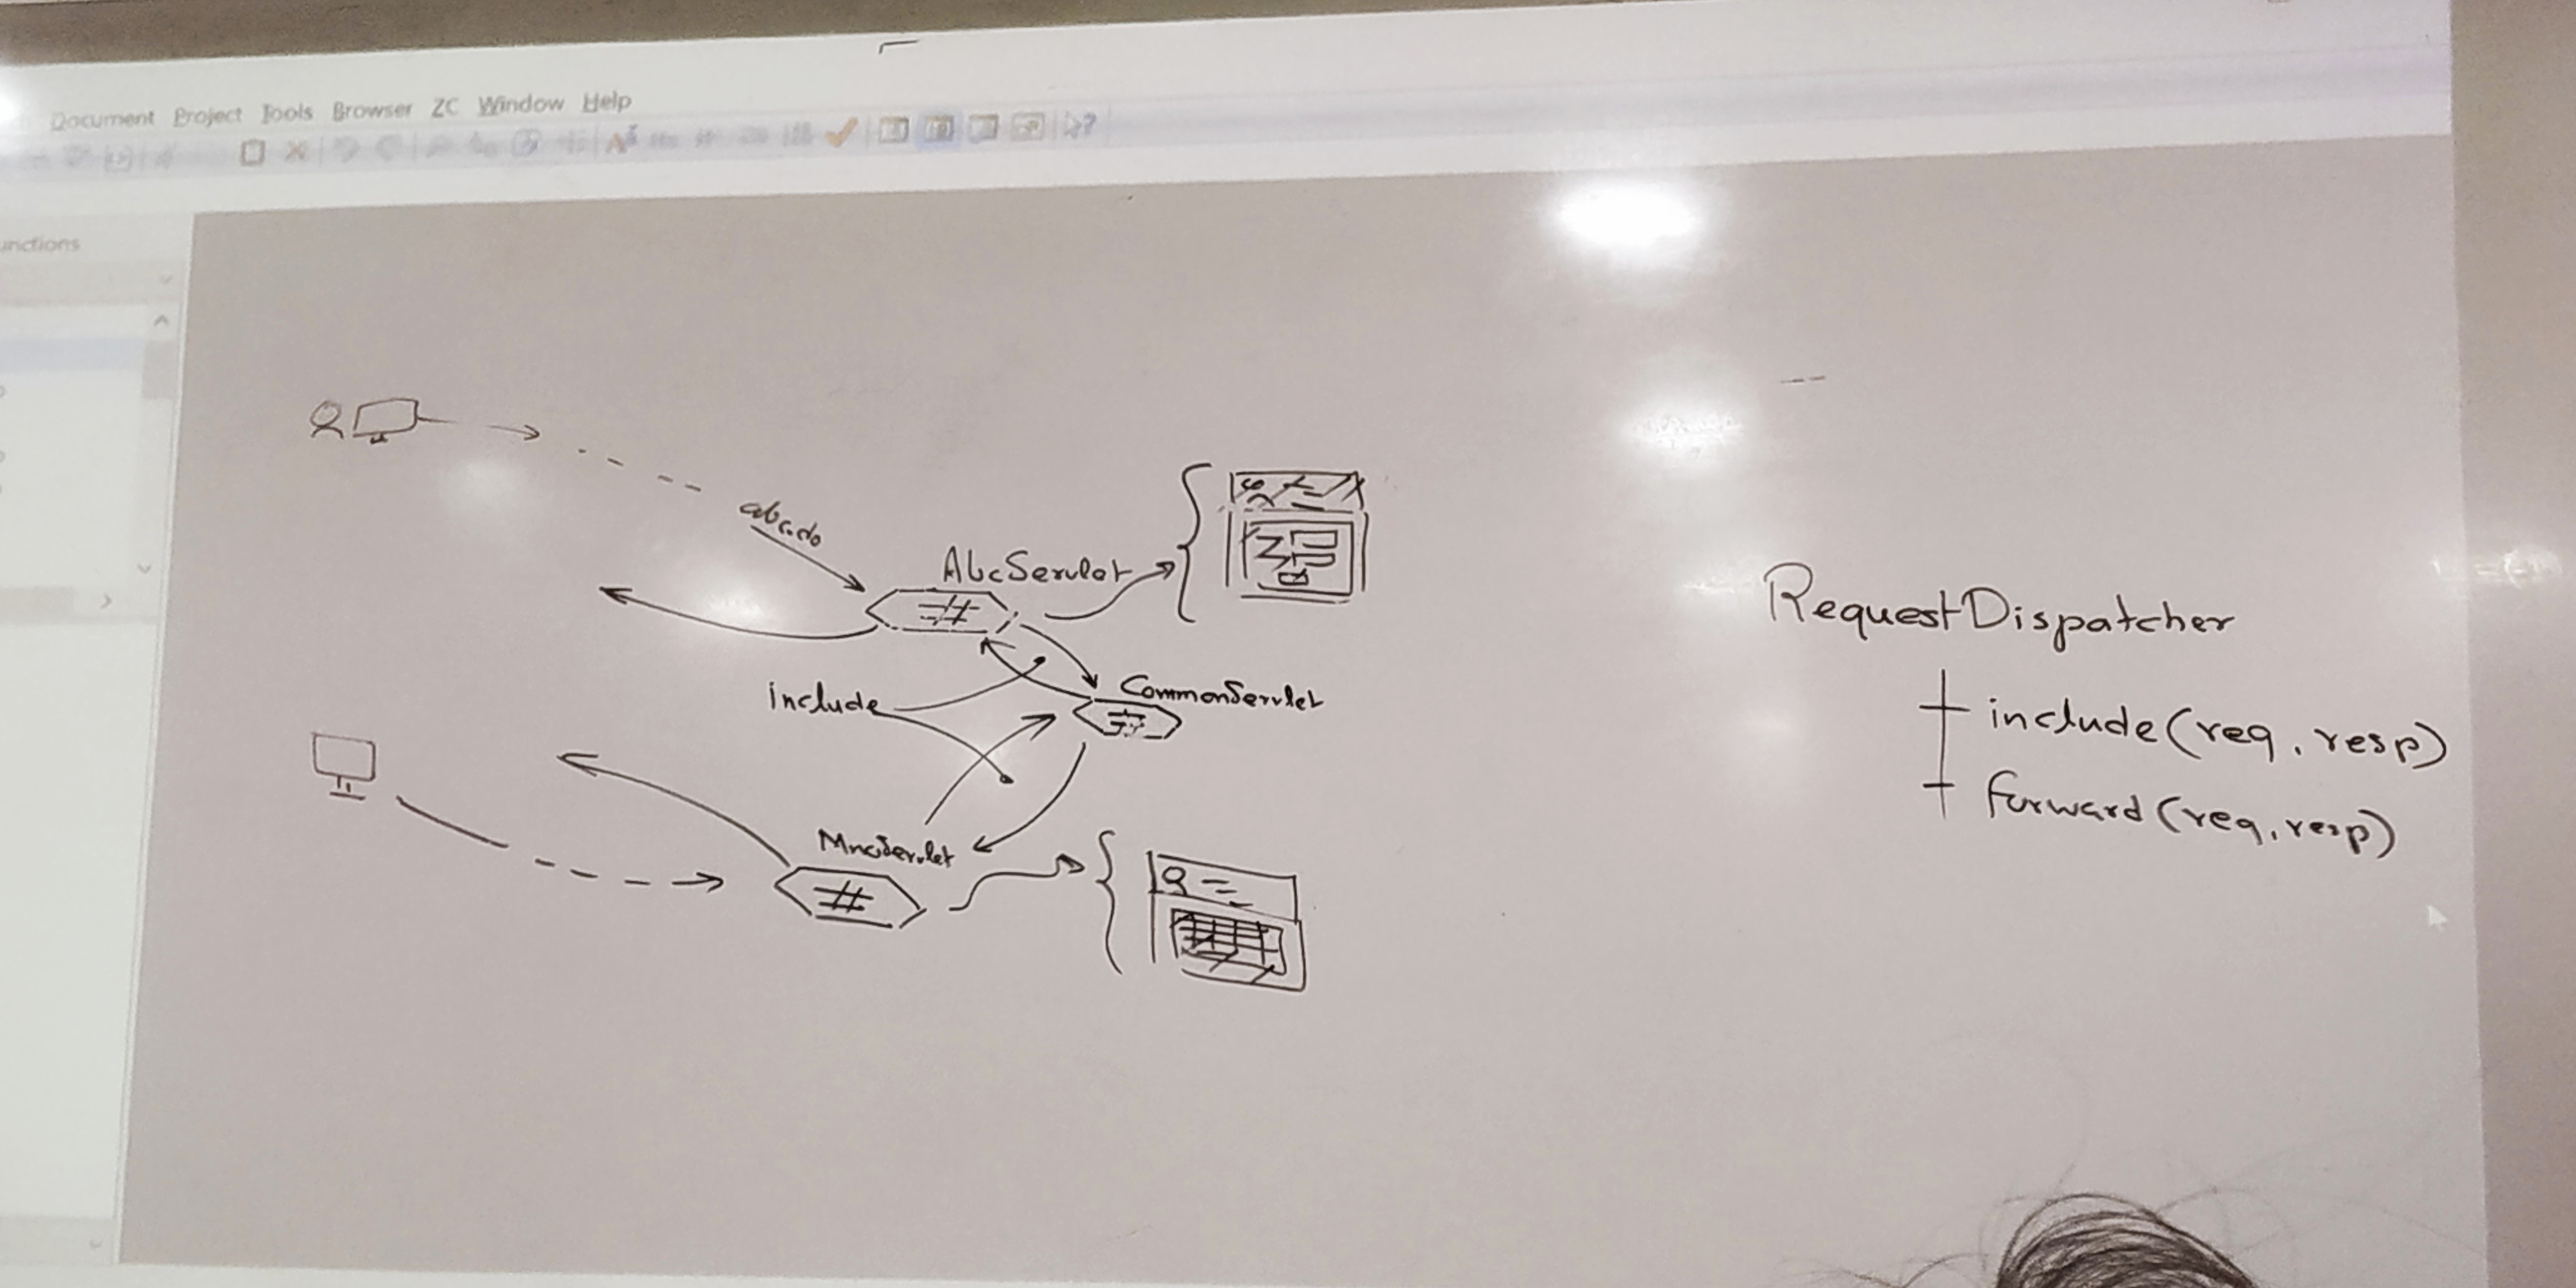 Document Project Tools Browser ZC Window Help
unctions
abc.do
AbcServlet
include
CommonServlet
RequestDispatcher
include(req, resp)
forward(req, resp)